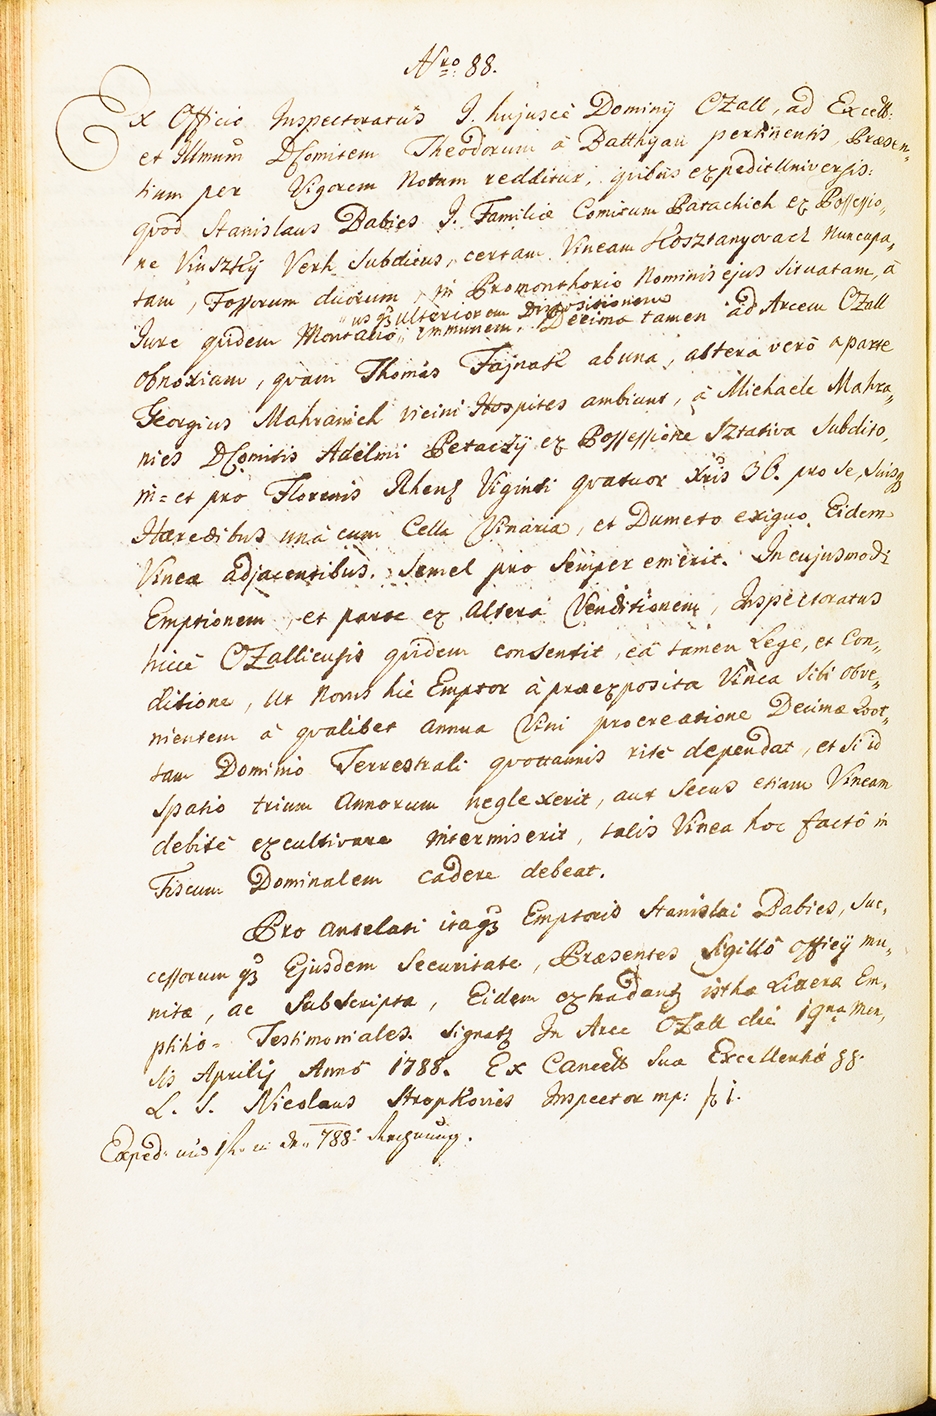 Nro 88.
Ex Officio Inspectoratus I. hujusce Dominij OZall, ad Excell:
et Illmum DComitem Theodorum à Batthyan pertinentis, Præsen„
tium per Vigorem Notum redditur, quibus expedit Universis:
quod Stanislaus Babics I. Familiæ Comitum Patachich ex Possessio„
ne Vinszky Verh Subditus, certam Vineam Hosztanyovacz Nuncupa„
tam, Fossorum duorum, in Promonthorio Nominis ejus Situatam, à
usqȝ Ulteriorem Dispositionem
Iure quidem Montalio„ immunem, Decimæ tamen ad Arcem OZall
obnoxiam, quam Thomas Fajnak ab una, altera verò a parte
Georgius Mahranich vicini Hospites ambiunt, à Michaele Mahra„
nics DComitis Adelmi Petazÿ ex Possessione Sztativa Subdito,
in= et pro Florenis Rhenȝ Viginti quatuor Xris 30. pro Se, Suisqȝ
Hæredibus unà cum Cella Vinaria, et Dumeto exiguo Eidem
Vineæ adjacentibus. Semel pro Semper emerit. In cujusmodi
Emptionem, et parte ex Altera Venditionem, Inspectoratus
hicce OZalliensis quidem consentit, eâ tamen Lege, et Con„
ditione, Ut Novus hic Emptor à præexposita Vinea Sibi obve„
nientem à qualibet Annua Vini procreatione Decimæ Quot„
tam Dominio Terrestrali quotannis rite dependat, et Si id
Spatio trium Annorum neglexerit, aut Secus etiam Vineam
debite excultivare intermiserit, talis Vinea hoc facto in
Fiscum Dominalem cadere debeat.
Pro antelati itaqȝ Emptoris Stanislai Babics, Suc„
cessorum qȝ Ejusdem Securitate, Præsentes Sigillô Officij mu„
nitæ, ac Subscriptæ, Eidem extradantȝ isthæ Litteræ Em„
ptitio= Testimoniales. Signatȝ In Arce OZall die 19na Men„
sis Aprilij Anno 1788. Ex Cancell Suæ Excellentiæ
L. S. Nicolaus Stropkovics Inspector mp:
Exped: 788: